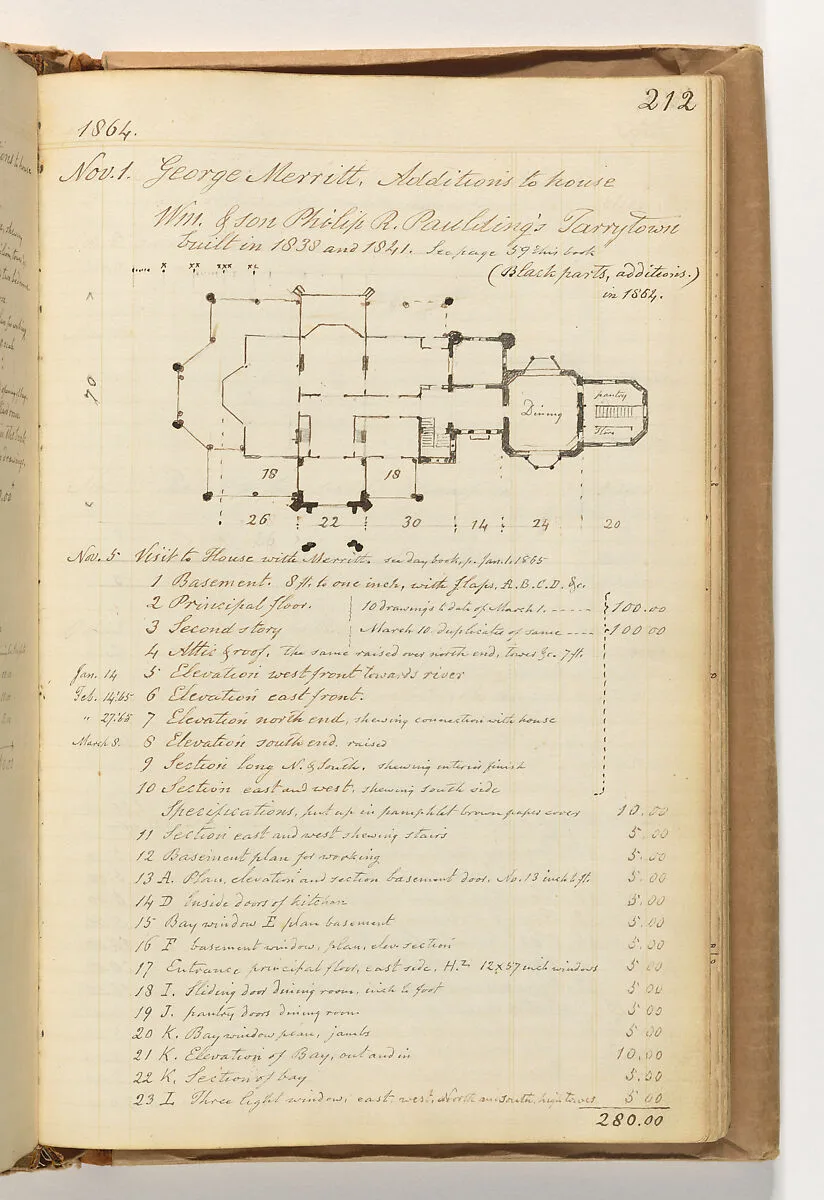 212
1864.
Nov. 1. George Merritt. Additions to house
Wm. & son Philip R. Paulding's Tarrytown
built in 1838 and 1841. See page 59 this book
(Black parts, additions.)
in 1864.
70
Dining
pantry
Store
18
18
26 22 30 14 24 20
Nov. 5 Visit to House with Merritt. see day book, p. Jan. 1. 1865
1 Basement. 8 ft. to one inch, with flaps, A. B. C. D. &c.
2 Principal floor. 10 drawings to date of March 1. 100.00
3 Second story March 10. duplicates of same 100 00
4 Attic & roof. the same raised over north end, tower &c. 7 ft.
Jan. 14 5 Elevation west front towards river
Feb. 14.'65 6 Elevation east front.
" 27.'65 7 Elevation north end, shewing connection with house
March 8. 8 Elevation south end. raised
9 Section long N. & South. shewing interior finish
10 Section east and west, shewing south side
Specifications, put up in pamphlet brown paper cover 10.00
11 Section east and west shewing stairs 5.00
12 Basement plan for working 5.00
13 A. Plan, elevation and section basement door. No. 13 inch to ft. 5.00
14 D Inside doors of kitchen 5.00
15 Bay window E plan basement 5.00
16 F basement window, plan, elev. section 5.00
17 Entrance principal floor, east side, H. 12 x 57 inch windows 5 00
18 I. Sliding door dining room, inch to foot 5 00
19 J. pantry doors dining room 5 00
20 K. Bay window plan, jambs 5 00
21 K. Elevation of Bay, out and in 10.00
22 K. Section of bay 5.00
23 L Three light window, east. west. North and south, high tower. 5 00
280.00